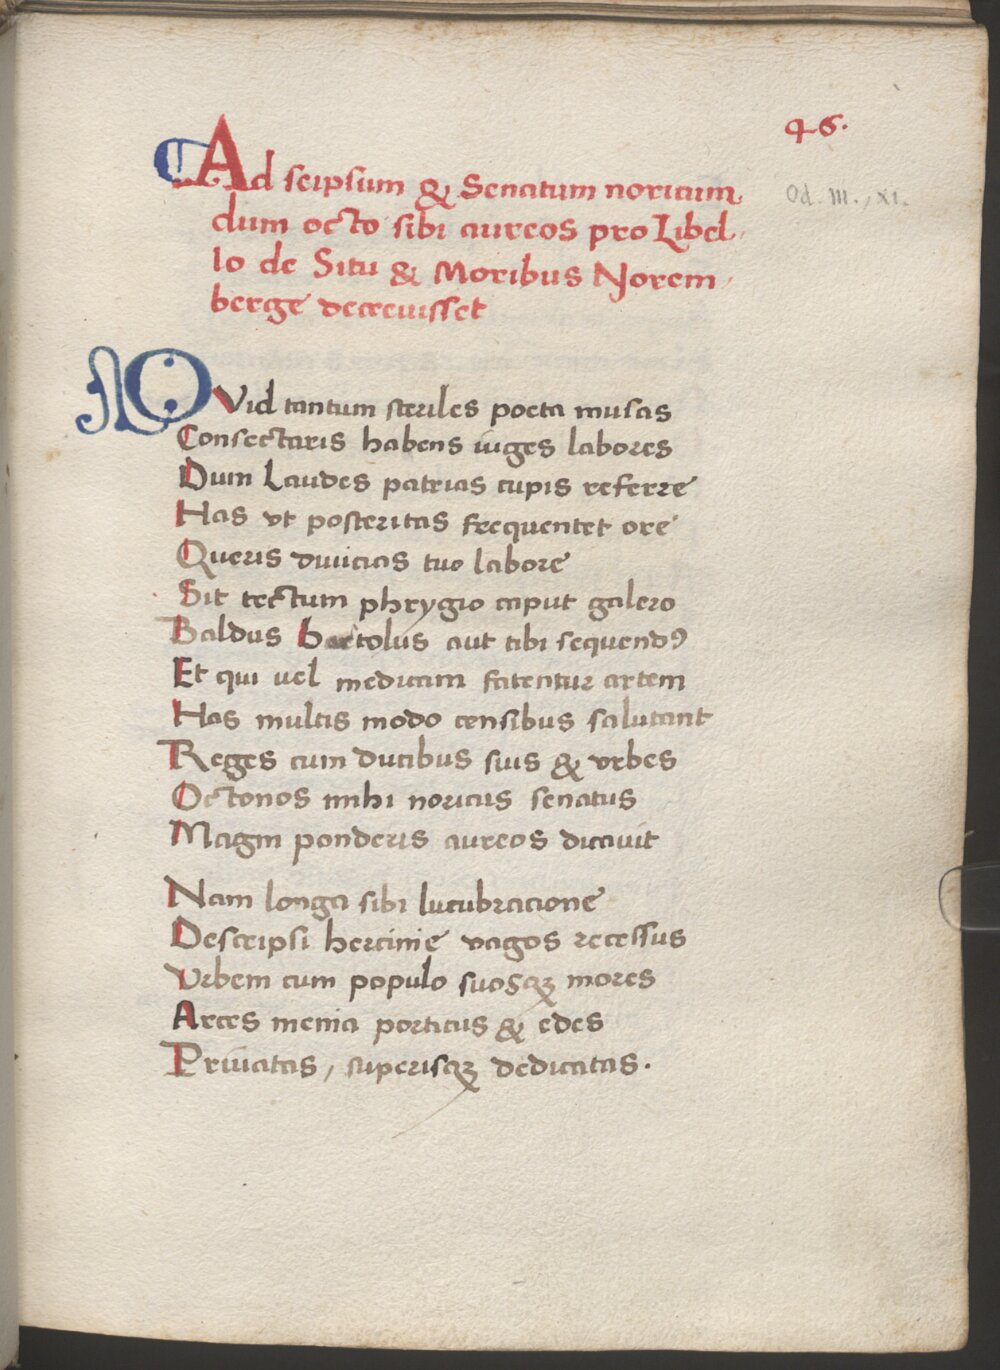 46.
Od. III., XI.
Ad seipsum & Senatum noricum
dum octo sibi aureos pro Libel,
lo de Situ & Moribus Norem,
berge decreuisset
QVid tantum steriles poeta musas
Consectaris habens iuges labores
Dum Laudes patrias cupis referre
Has vt posteritas frequentet ore
Queris diuicias tuo labore
Sit tectum phrygio caput galero
Baldus bartolus aut tibi sequendꝰ
Et qui uel medicam fatentur artem
Has multis modo censibus salutant
Reges cum ducibus suis & vrbes
Octonos mihi noricus senatus
Magni ponderis aureos dicauit
Nam longa sibi lucubracione
Descripsi hercinie vagos recessus
Vrbem cum populo suosqꝫ mores
Arces menia porticus & edes
Priuatas, superisqꝫ dedicatas.